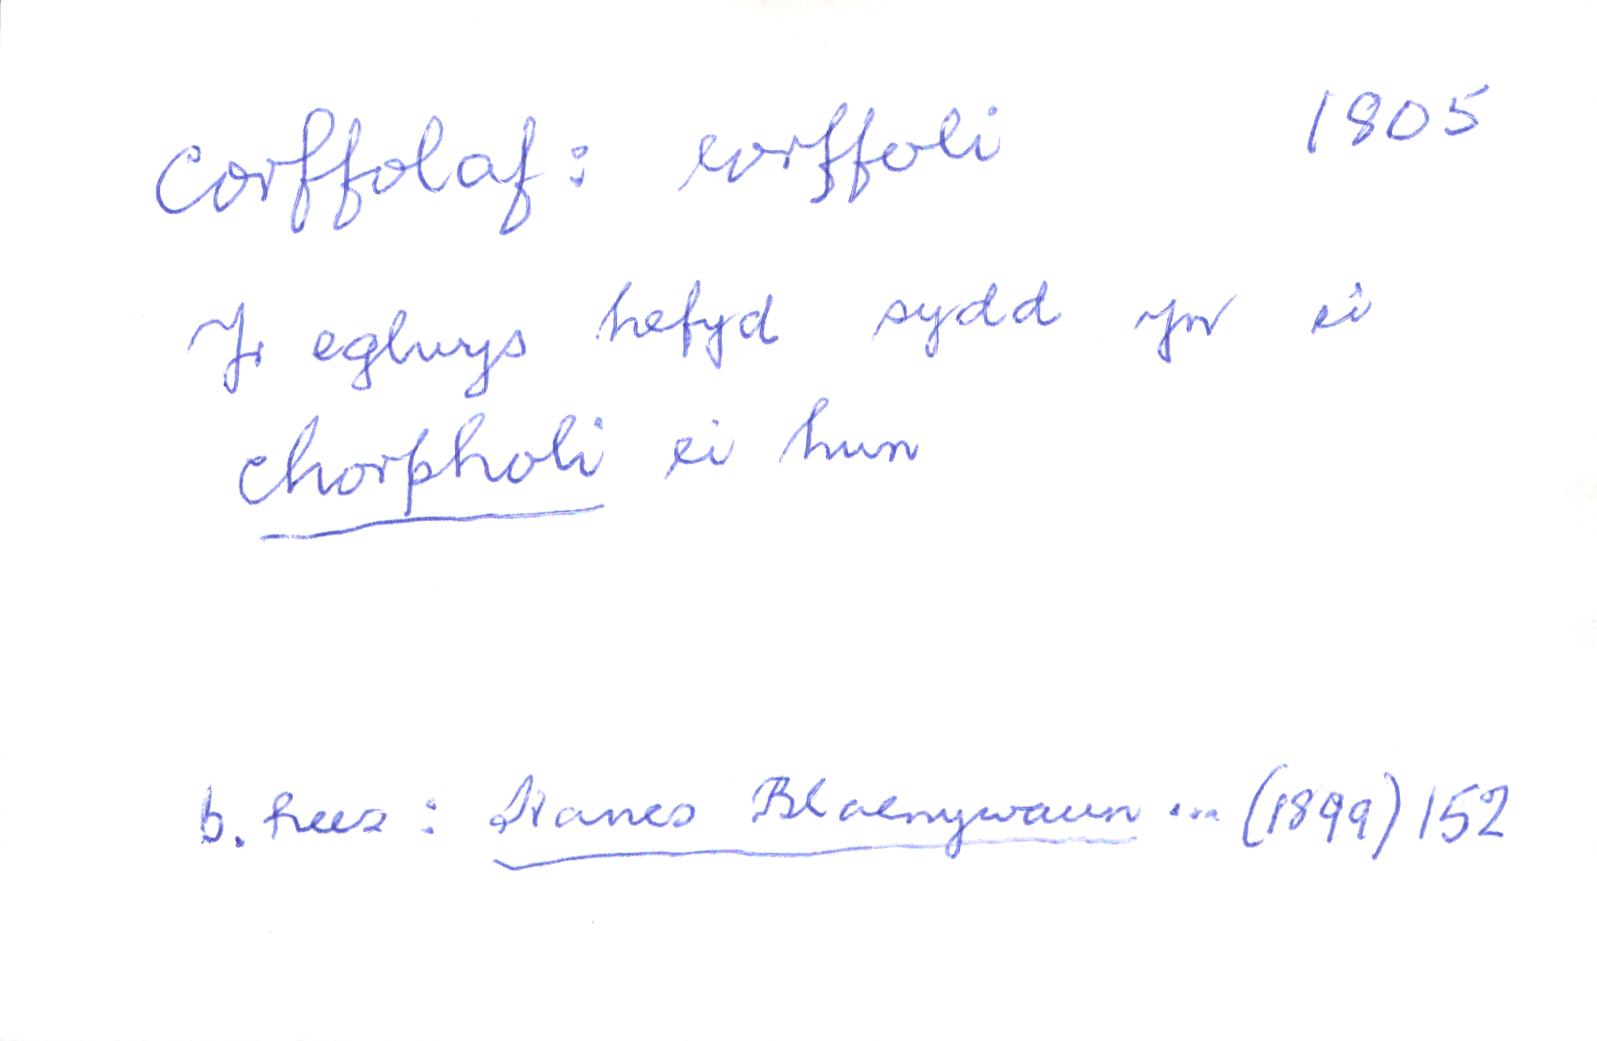 corffolaf: corffoli 1805
Yr eglwys hefyd sydd yn ei
chorpholi ei hun
b. Rees: Hanes Blaenywaun ... (1899) 152